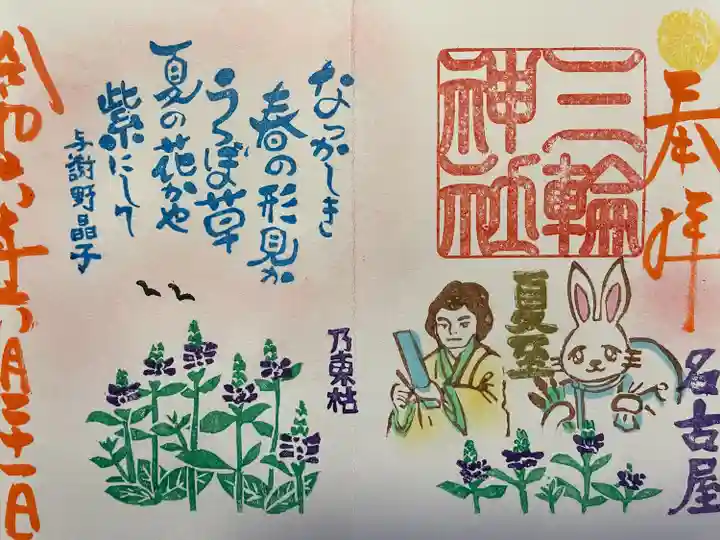 奉拝
三輪
神社
夏至
名古屋
なつかしき
春の形見か
うつぼ草
夏の花かや
紫にして
与謝野晶子
乃東枯
令和六年六月二十一日